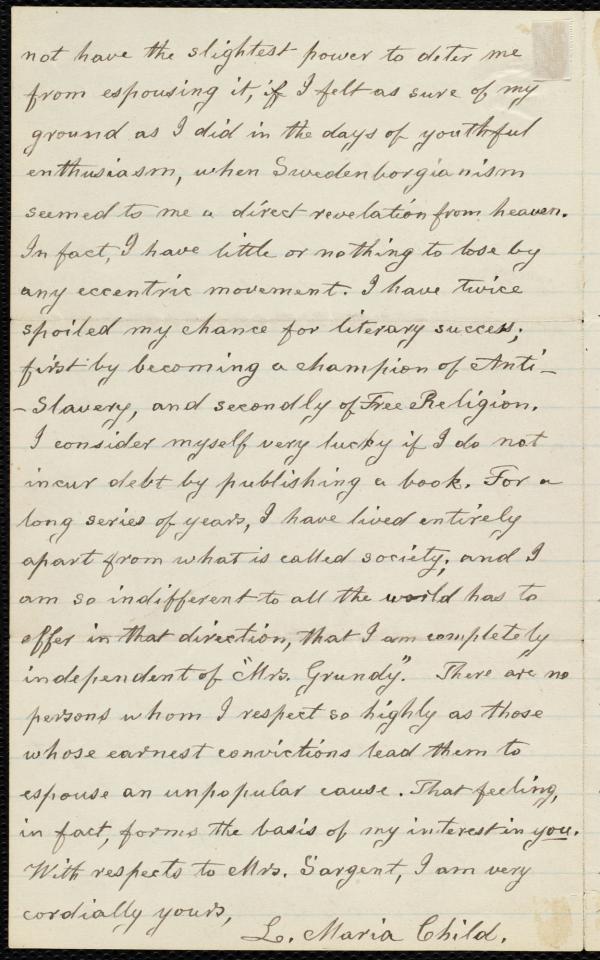 not have the slightest power to deter me
from espousing it, if I felt as sure of my
ground as I did in the days of youthful
enthusiasm, when Swedenborgianism
seemed to me a direct revelation from heaven.
In fact, I have little or nothing to lose by
any eccentric movement. I have twice
spoiled my chance for literary success;
first by becoming a champion of Anti-
-Slavery, and secondly of Free Religion.
I consider myself very lucky if I do not
incur debt by publishing a book. For a
long series of years, I have lived entirely
apart from what is called society; and I
am so indifferent to all the world has to
offer in that direction, that I am completely
independent of "Mrs. Grundy". There are no
persons whom I respect so highly as those
whose earnest convictions lead them to
espouse an unpopular cause. That feeling,
in fact, forms the basis of my interest in you.
With respects to Mrs. Sargent, I am very
cordially yours,
L. Maria Child.